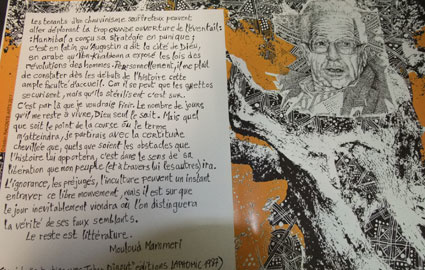 Les tenants d'un chauvinisme souffreteux peuvent
aller déplorant la trop grande ouverture de l'éventail:
Hannibal a conçu sa stratégie en punique;
c'est en latin qu'Augustin a dit la cité de Dieu,
en arabe qu'Ibn Khaldoun a exposé les lois des
révolutions des hommes. Personnellement, il me plait
de constater dès les débuts de l'histoire cette
ample faculté d'accueil. Car il se peut que les ghettos
sécurisent, mais qu'ils stérilisent c'est sûr.
C'est par là que je voudrais finir. Le nombre de jours
qu'il me reste à vivre, Dieu seul le sait. Mais quel
que soit le point de la course où le terme
m'atteindra, je partirai avec la certitude
chevillée que, quels que soient les obstacles que
l'histoire lui apportera, c'est dans le sens de sa
libération que mon peuple (et à travers lui les autres) ira.
L'ignorance, les préjugés, l'inculture peuvent un instant
entraver ce libre mouvement, mais il est sûr que
le jour inévitablement viendra où l'on distinguera
la vérité de ses faux semblants.
Le reste est littérature.
Mouloud Mammeri
éditions LAPHOMIC